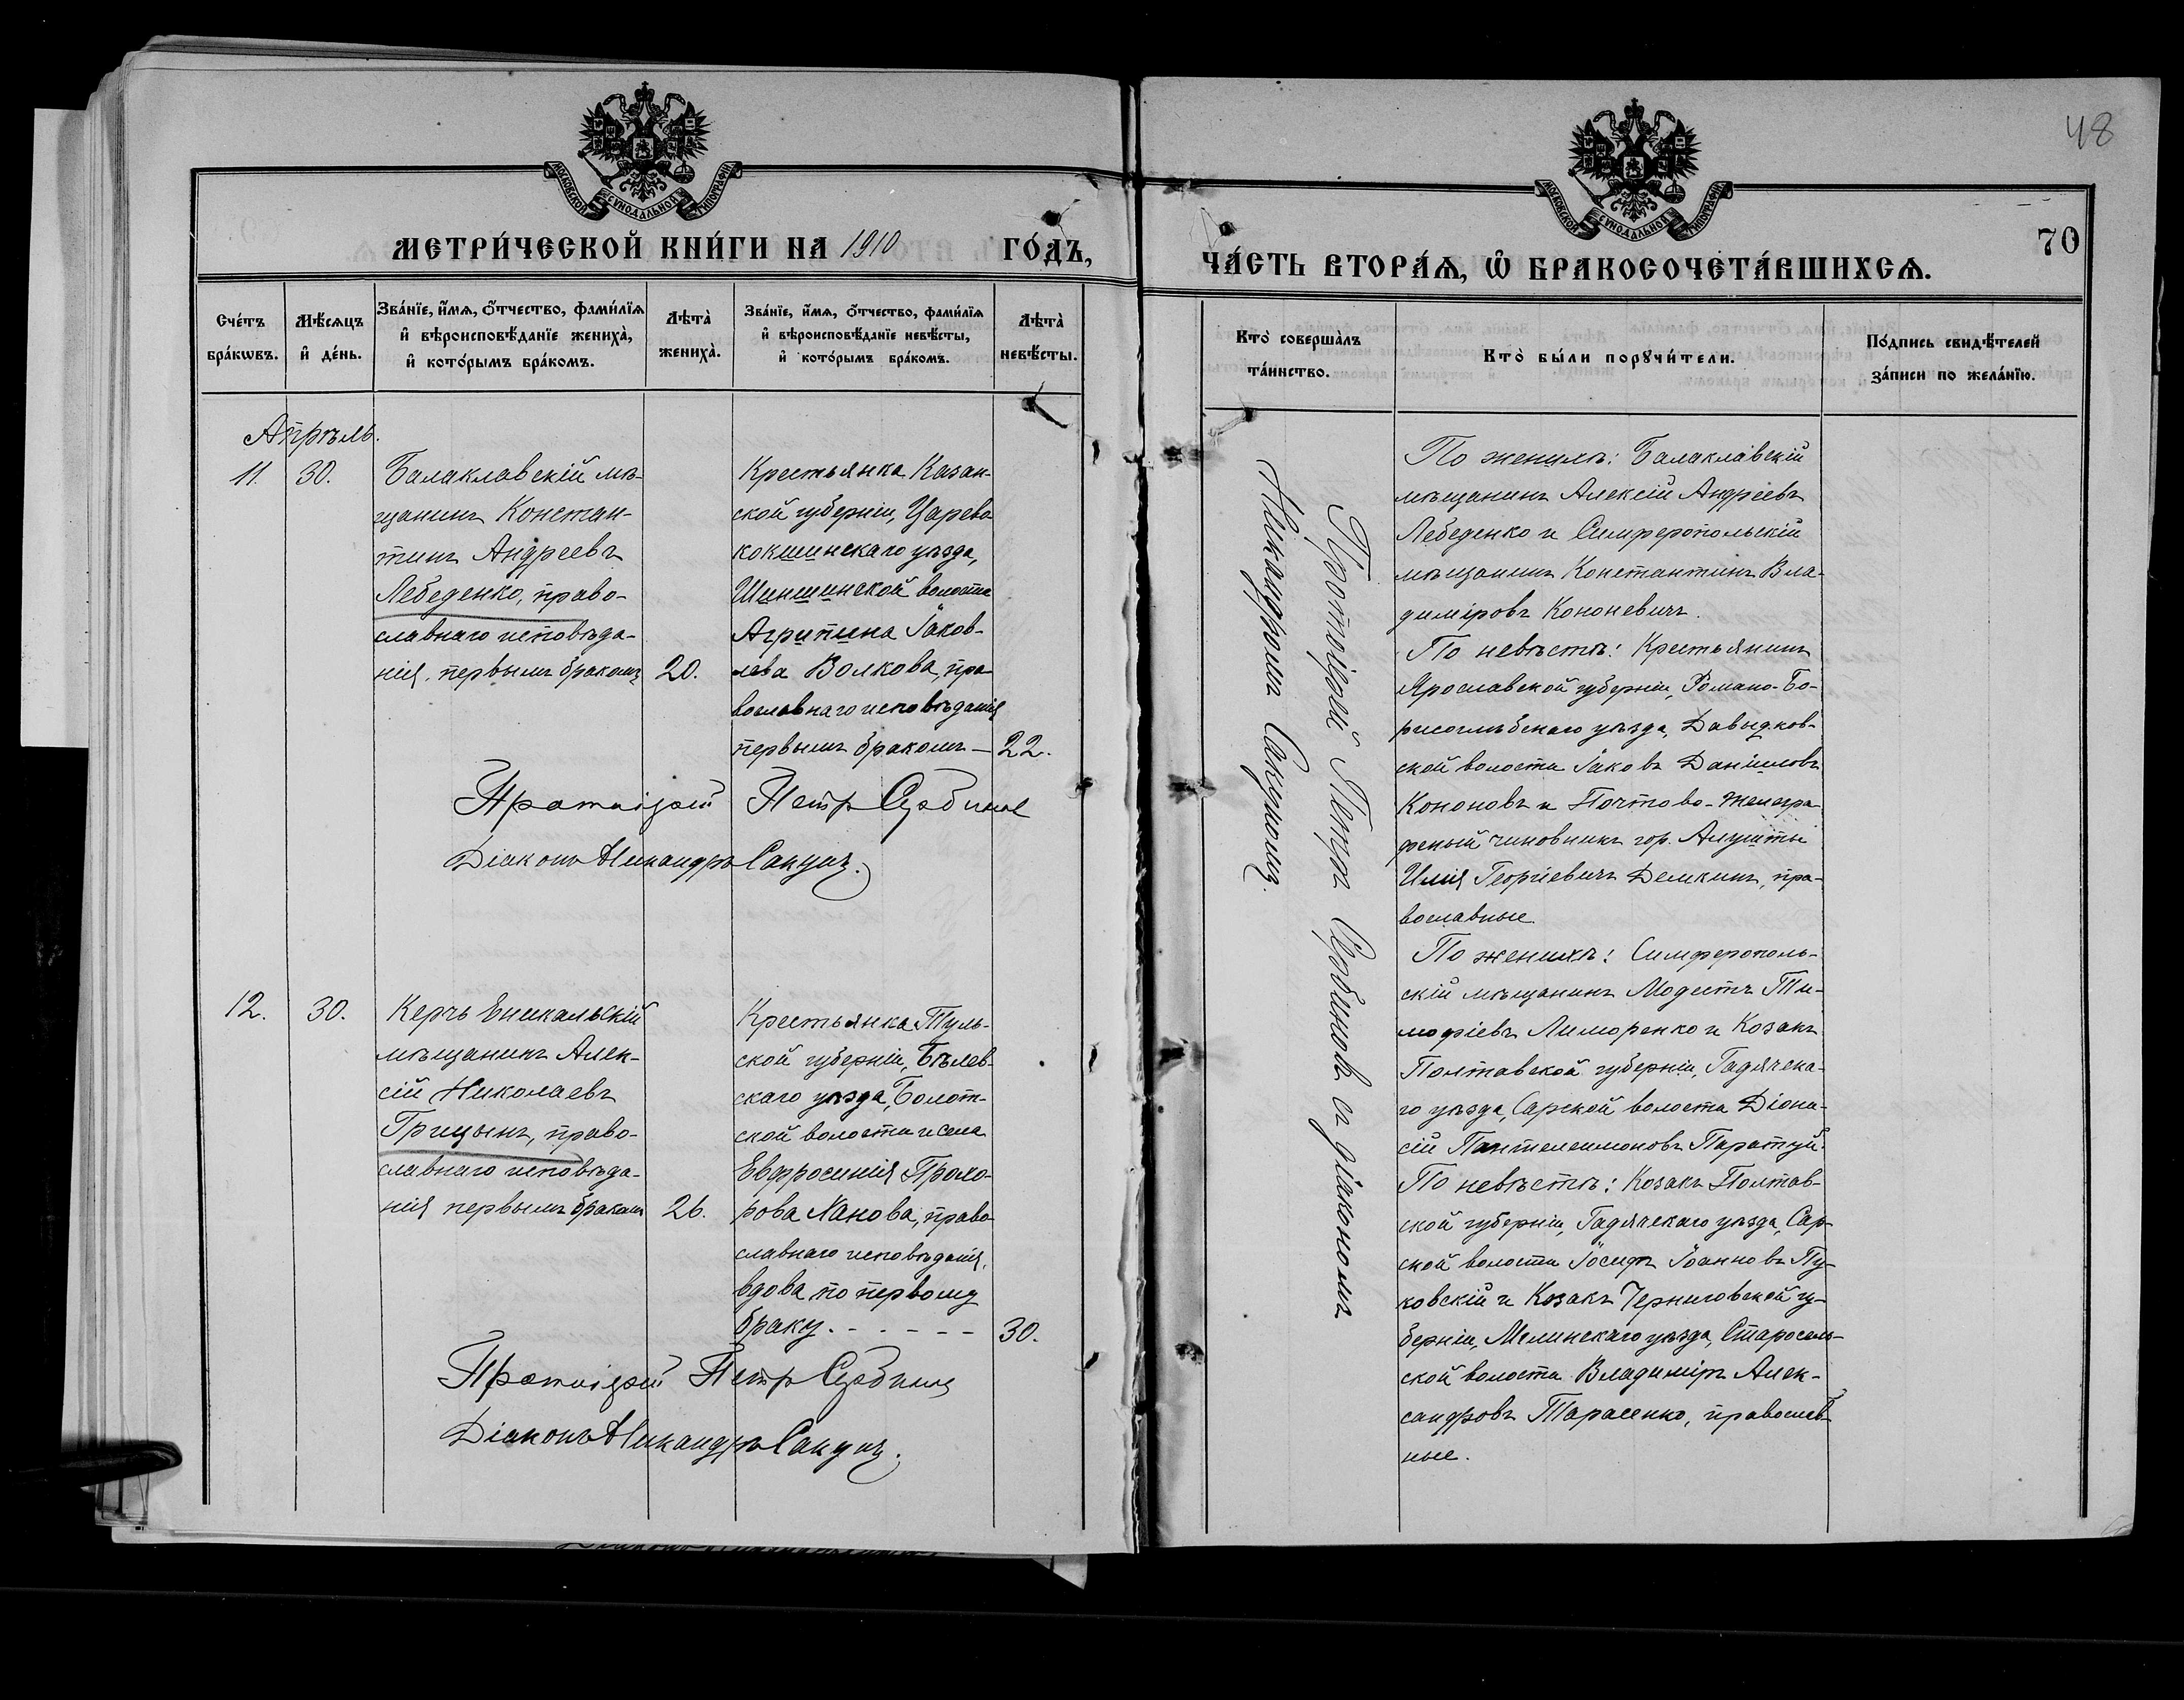 МОСКОВСКОЙ СѴНОДАЛЬНОЙ ТИПОГРАФІИ
МЕТРИ́ЧЕСКОЙ КНИ́ГИ НА 1910 ГО́ДЪ,
Сче́тъ бра́кѡвъ.
Мѣ́сяцъ и҆ де́нь.
Зва́нїе, и҆́мѧ, ѻ҆́тчество, фами́лїѧ
и҆ вѣроисповѣ́данїе жениха̀,
и҆ кото́рымъ бра́комъ.
Лѣта̀ жениха̀.
Зва́нїе, и҆́мѧ, ѻ҆́тчество, фами́лїѧ
и҆ вѣроисповѣ́данїе невѣ́сты,
и҆ кото́рымъ бра́комъ.
Лѣта̀ невѣ́сты.
Апрѣль.
11. 30.
Балаклавскій мѣ-
щанинъ Констан-
тинъ Андреевъ
Лебеденко, право-
славнаго исповѣда-
нія, первымъ бракомъ
20.
Крестьянка Казан-
ской губерніи, Царево
кокшинскаго уѣзда,
Шиншинской волости
Агрипина Іаков-
лева Волкова, пра-
вославнаго исповѣданія
первымъ бракомъ —
22.
Протоіерей Петр Сербинов
Діаконъ Никандръ Сакунъ.
12. 30.
Керчь Еникальскій
мѣщанинъ Алек-
сій Николаевъ
Грицынъ, право-
славнаго исповѣда-
нія первымъ бракомъ
26.
Крестьянка Туль-
ской губерніи, Бѣлев-
скаго уѣзда, Болот-
ской волости и села
Евфросинія Прохо-
рова Ханова, право-
славнаго исповѣданія,
вдова по первому
браку. - - - - - -
30.
Протоіерей Петр Сербинов
Діаконъ Никандръ Сакунъ.
48
МОСКОВСКОЙ СѴНОДАЛЬНОЙ ТИПОГРАФІИ
70
ЧА́СТЬ ВТОРА́Ѧ, Ѡ҆ БРАКОСОЧЕТА́ВШИХСѦ.
Кто̀ соверша́лъ
та́инство.
Кто̀ бы́ли порꙋчи́тели.
По́дпись свидѣ́телей
за́писи по жела́нїю.
Протоіерей Петръ Сербиновъ съ діакономъ
Никандромъ Сакуномъ.
По женихѣ: Балаклавскій
мѣщанинъ Алексій Андреевъ
Лебеденко и Симферопольскій
мѣщанинъ Константинъ Вла-
диміровъ Кононевичъ.
По невѣстѣ: Крестьянинъ
Ярославской губерніи, Романо-Бо-
рисоглѣбскаго уѣзда, Давыдков-
ской волости Іаковъ Даніиловъ
Кононовъ и Почтово-телегра-
фный чиновникъ гор. Алушты
Илія Георгіевичъ Демкинъ, пра-
вославные.
По женихѣ: Симферополь-
скій мѣщанинъ Модестъ Ти-
мофіевъ Лиморенко и Козакъ
Полтавской губерніи, Гадячска-
го уѣзда, Сарской волости Діони-
сій Пантелеимоновъ Паратуй.
По невѣстѣ: Козакъ Полтав-
ской губерніи, Гадячскаго уѣзда, Сар-
ской волости Іосифъ Іоанновъ Пу-
ковскій и Козакъ Черниговской гу-
берніи, Мглинскаго уѣзда, Старосель-
ской волости Владиміръ Алек-
сандровъ Тарасенко, православ-
ные.